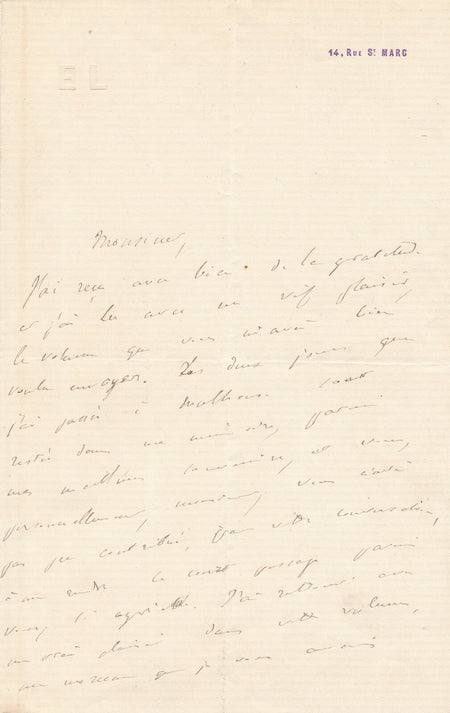 14, RUE St MARC
E L
Monsieur,
J'ai reçu avec bien de la gratitude
et j'ai lu avec un vif plaisir,
le volume que vous m'avez bien
voulu envoyer. Les deux jours que
j'ai passés à Mulhouse sont
restés dans ma mémoire, parmi
mes meilleurs souvenirs, et vous,
personnellement, monsieur, vous n'avez
pas peu contribué, par votre conversation,
à me rendre ce court passage parmi
vous, si agréable. J'ai retrouvé avec
un vrai plaisir dans votre volume,
un morceau que je vous avais